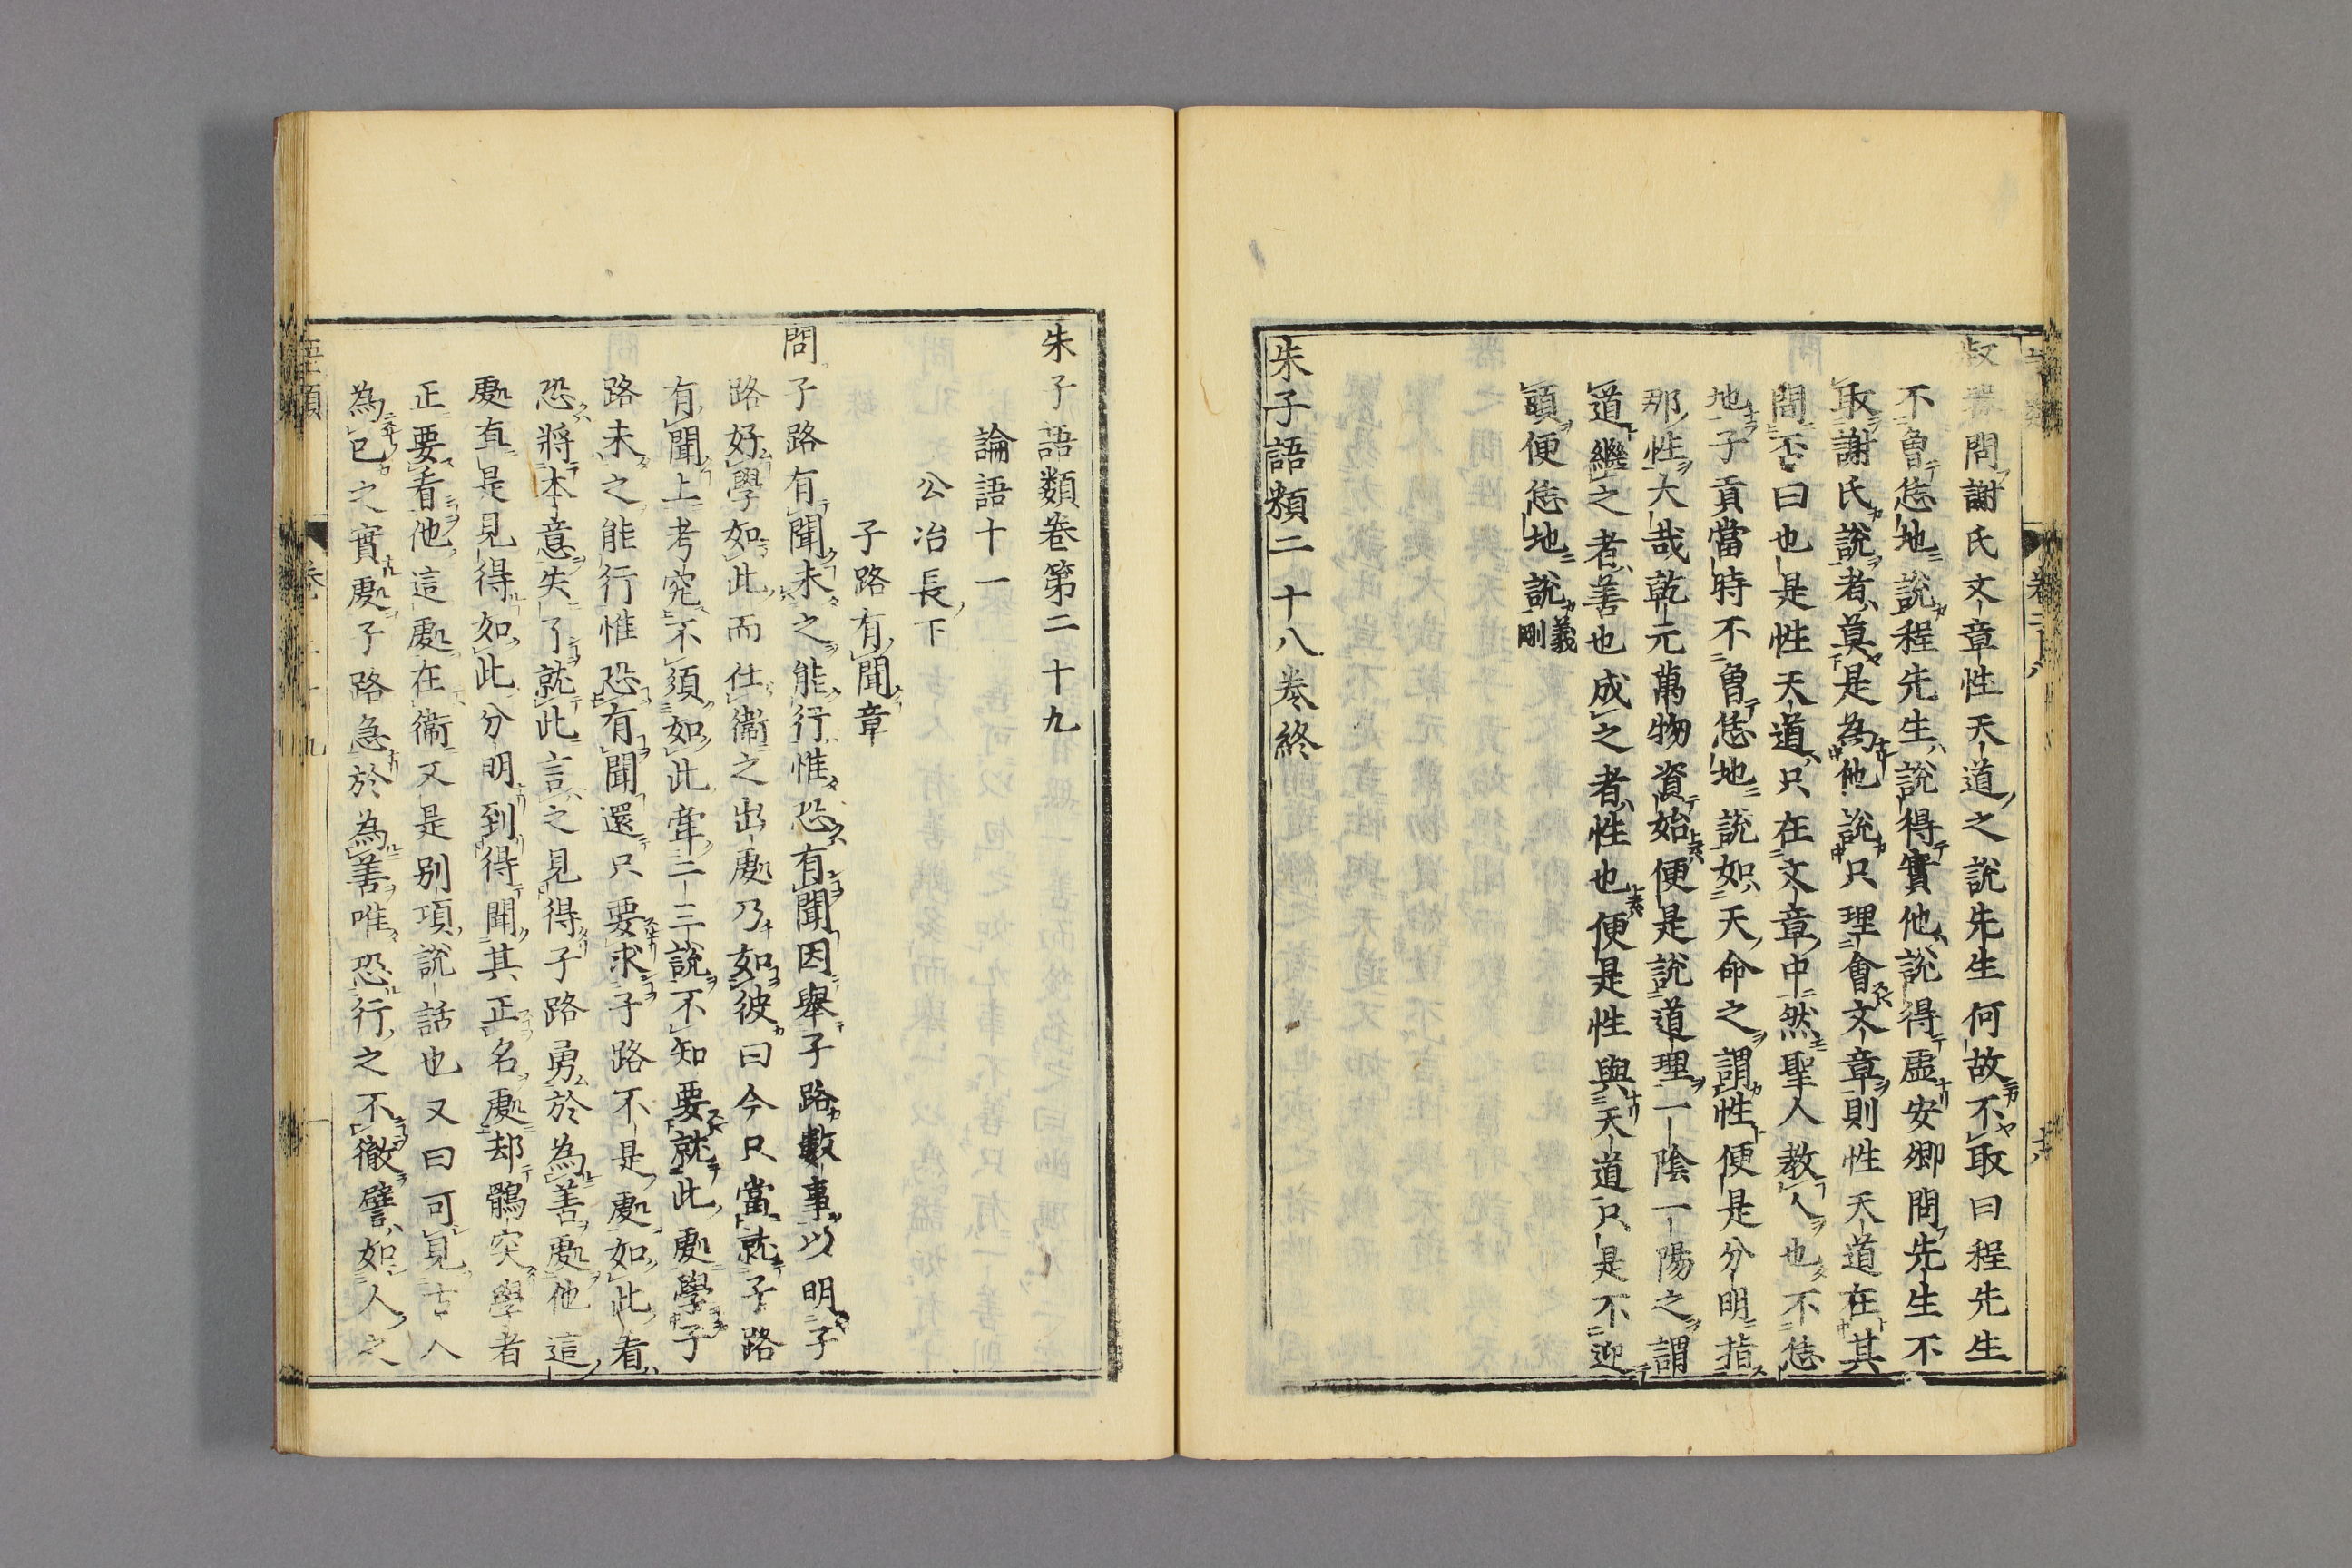 叔器問謝氏文章性天道之說先生何故不取曰程先生
不曾恁地說程先生說得實他說得虛安卿問先生不
取謝氏說者莫是為他說只理會文章則性天道在其
間否曰也是性天道只在文章中然聖人教人也不恁
地子貢當時不曾恁地說如天命之謂性便是分明指
那性大哉乾元萬物資始便是說道理一陰一陽之謂
道繼之者善也成之者性也便是性與天道只是不迎
頭便恁地說義剛
朱子語類二十八卷終
朱子語類卷第二十九
論語十一
公冶長下
子路有聞章
問子路有聞未之能行惟恐有聞因舉子路數事以明子
路好學如此而仕衞之出處乃如彼曰今只當就子路
有聞上考究不須如此牽二三說不知要就此處學子
路未之能行惟恐有聞還只要求子路不是處如此看
恐將本意失了就此言之見得子路勇於為善處他這
處有是見得如此分明到得聞其正名處却鶻突學者
正要看他這處在衞又是別項說話也又曰可見古人
為已之實處子路急於為善唯恐行之不徹譬如人之
卷二十八
十六
語類
卷二十九
一